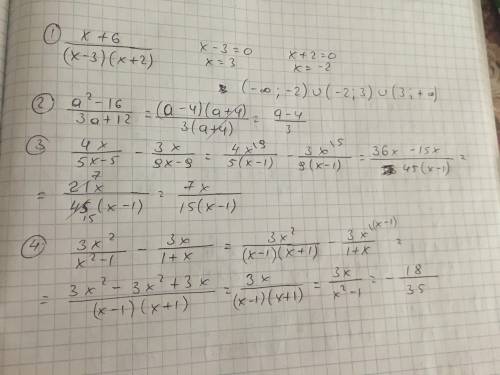 ① x+6 / (x-3)(x+2)   x-3=0   x+2=0
x=3   x=-2
(-∞;-2)∪(-2;3)∪(3;+∞)
② a²-16 / 3a+12 = (a-4)(a+4) / 3(a+4) = a-4 / 3
③ 4x / 5x-5 - 3x / 9x-9 = 4x\9 / 5(x-1) - 3x\5 / 9(x-1) = 36x-15x / 45(x-1) =
= 21x 7 / 45 15 (x-1) = 7x / 15(x-1)
④ 3x² / x²-1 - 3x / 1+x = 3x² / (x-1)(x+1) - 3x\(x-1) / 1+x =
= 3x²-3x²+3x / (x-1)(x+1) = 3x / (x-1)(x+1) = 3x / x²-1 = - 18 / 35